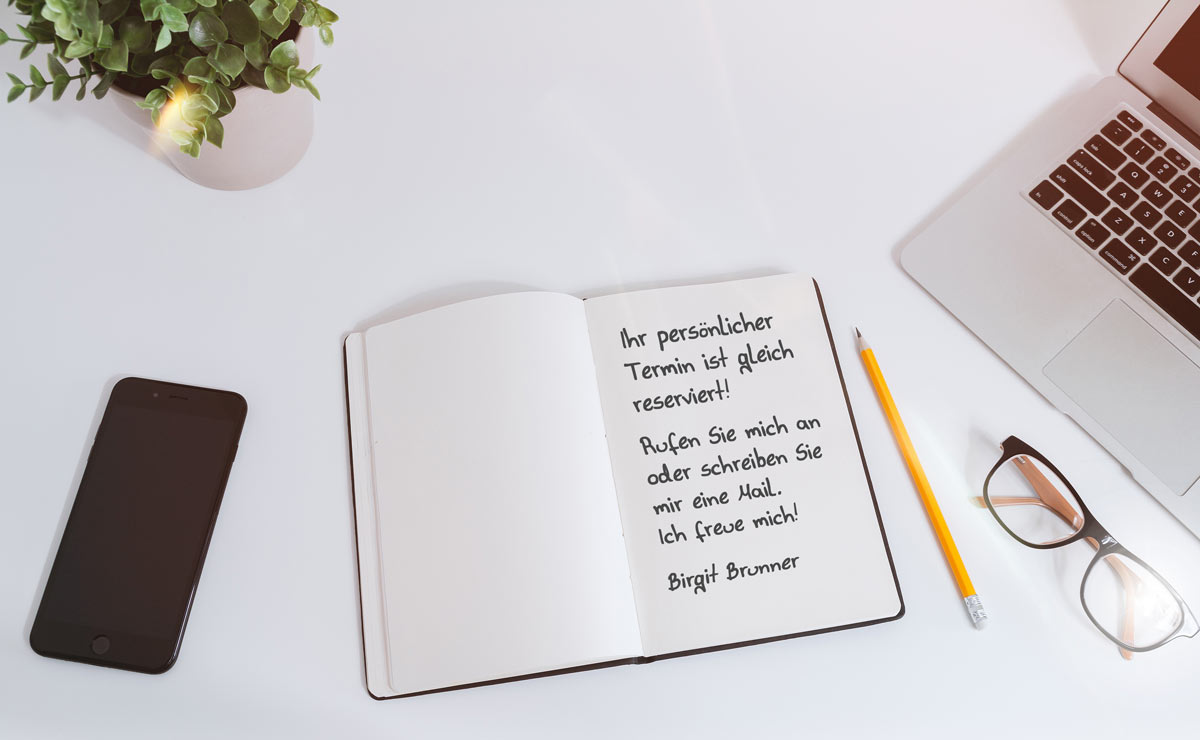 Ihr persönlicher
Termin ist gleich
reserviert!
Rufen Sie mich an
oder schreiben Sie
mir eine Mail.
Ich freue mich!
Birgit Brunner